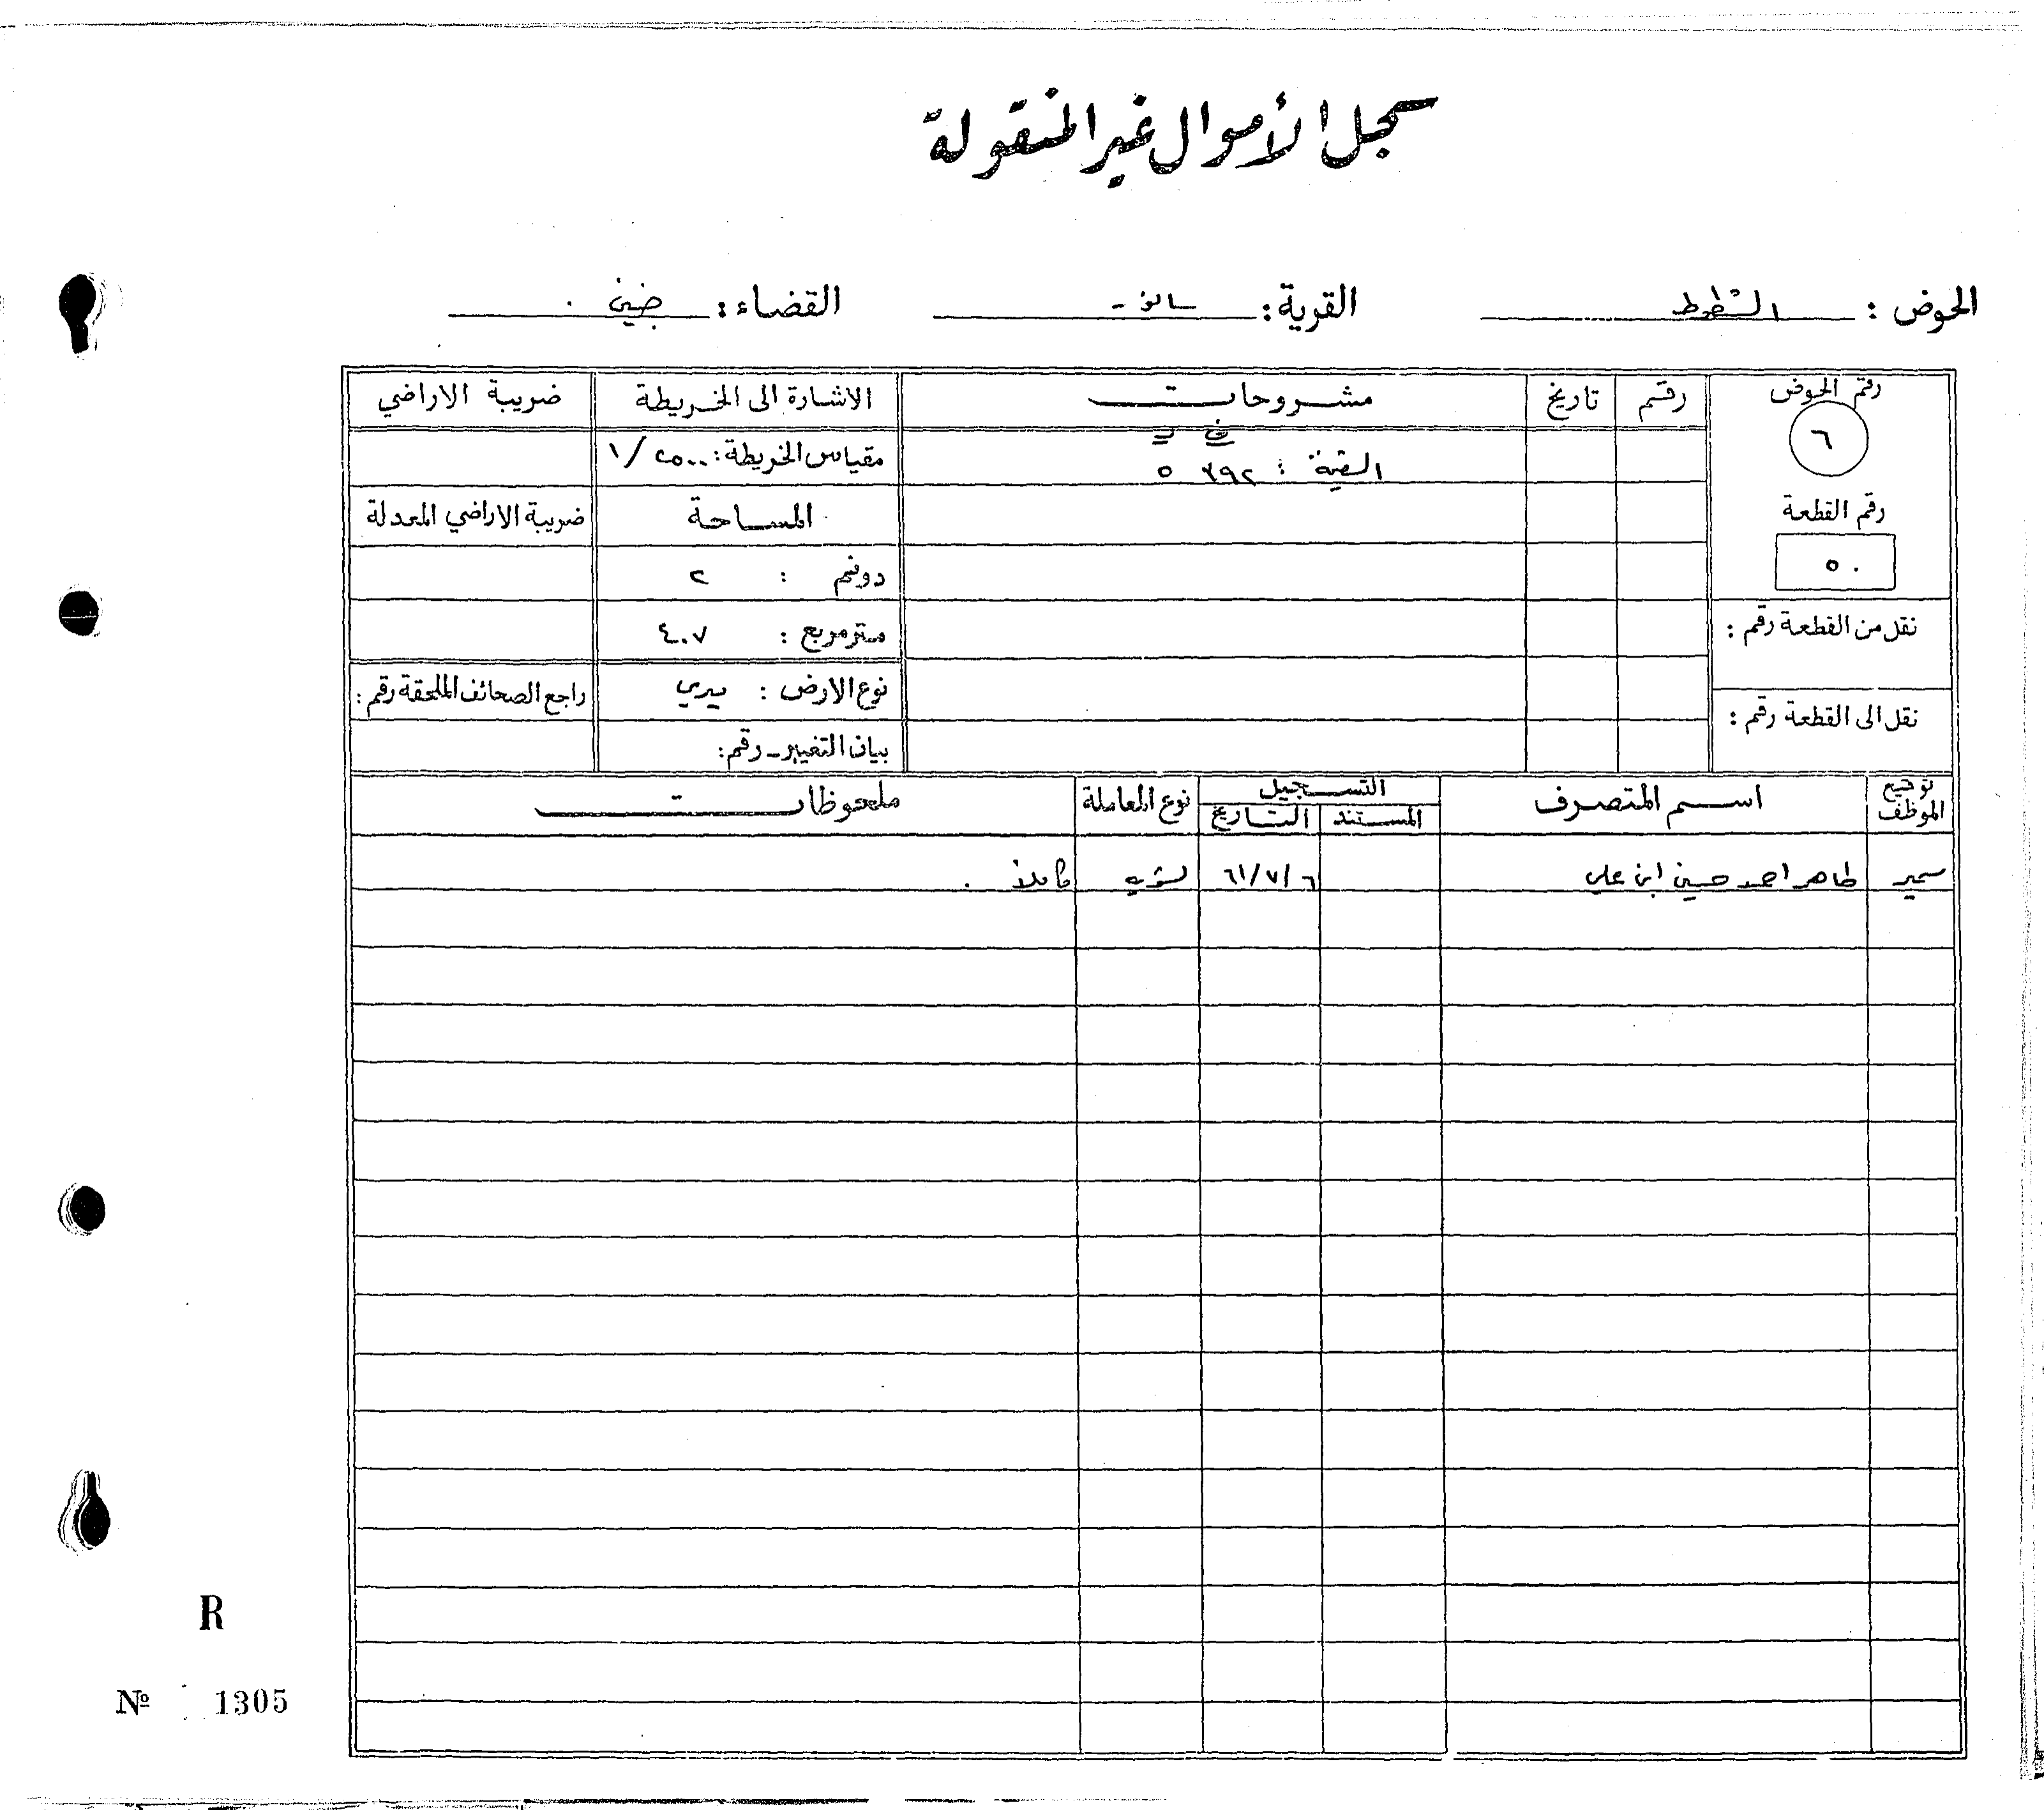 سجل الأموال غير المنقولة
الحوض : الشطوط القرية : سالم القضاء : جنين
رقم الحوض رقم تاريخ مشروحات الاشارة الى الخريطة ضريبة الاراضي
٦
القيمة : ٣٩٢ ٥ مقياس الخريطة : ٢٥٠٠ / ١
رقم القطعة المساحة ضريبة الاراضي المعدلة
٥٠ دونم : ٢
نقل من القطعة رقم : متر مربع : ٤٠٧
نوع الارض : ميري راجع الصحائف الملحقة رقم :
نقل الى القطعة رقم :
بيان التغيير - رقم :
توقيع الموظف اسم المتصرف التسجيل نوع المعاملة ملحوظات
المستند التاريخ
سمير طاهر احمد حسين ابن علي ٦ / ٧ / ٦١ تسوية كاملا
R
Nº 1305